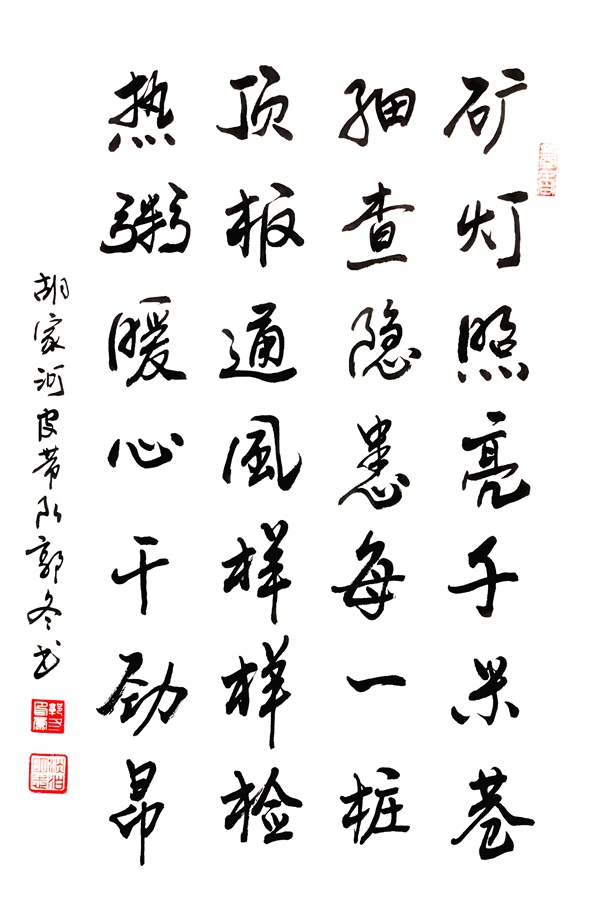 矿灯照亮千米巷
细查隐患每一桩
顶板通風样样检
热粥暖心干劲昂
胡家河皮带队郭冬书